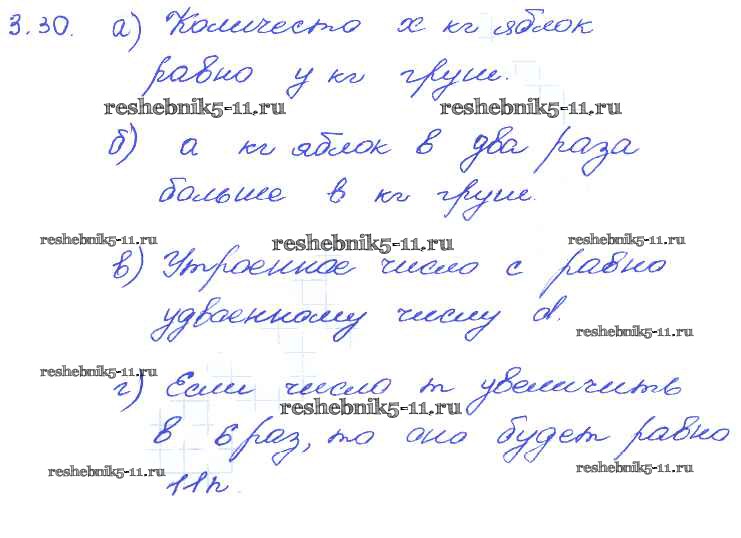 3.30. а) Количесто х кг яблок
равно у кг груш.
reshebnik5-11.ru reshebnik5-11.ru
б) а кг яблок в два раза
больше в кг груш.
reshebnik5-11.ru reshebnik5-11.ru reshebnik5-11.ru
в) Утроенное число с равно
удвоенному числу d.
reshebnik5-11.ru
reshebnik5-11.ru
г) Если число m увеличить
reshebnik5-11.ru
в 6 раз, то оно будет равно
reshebnik5-11.ru reshebnik5-11.ru
11n.